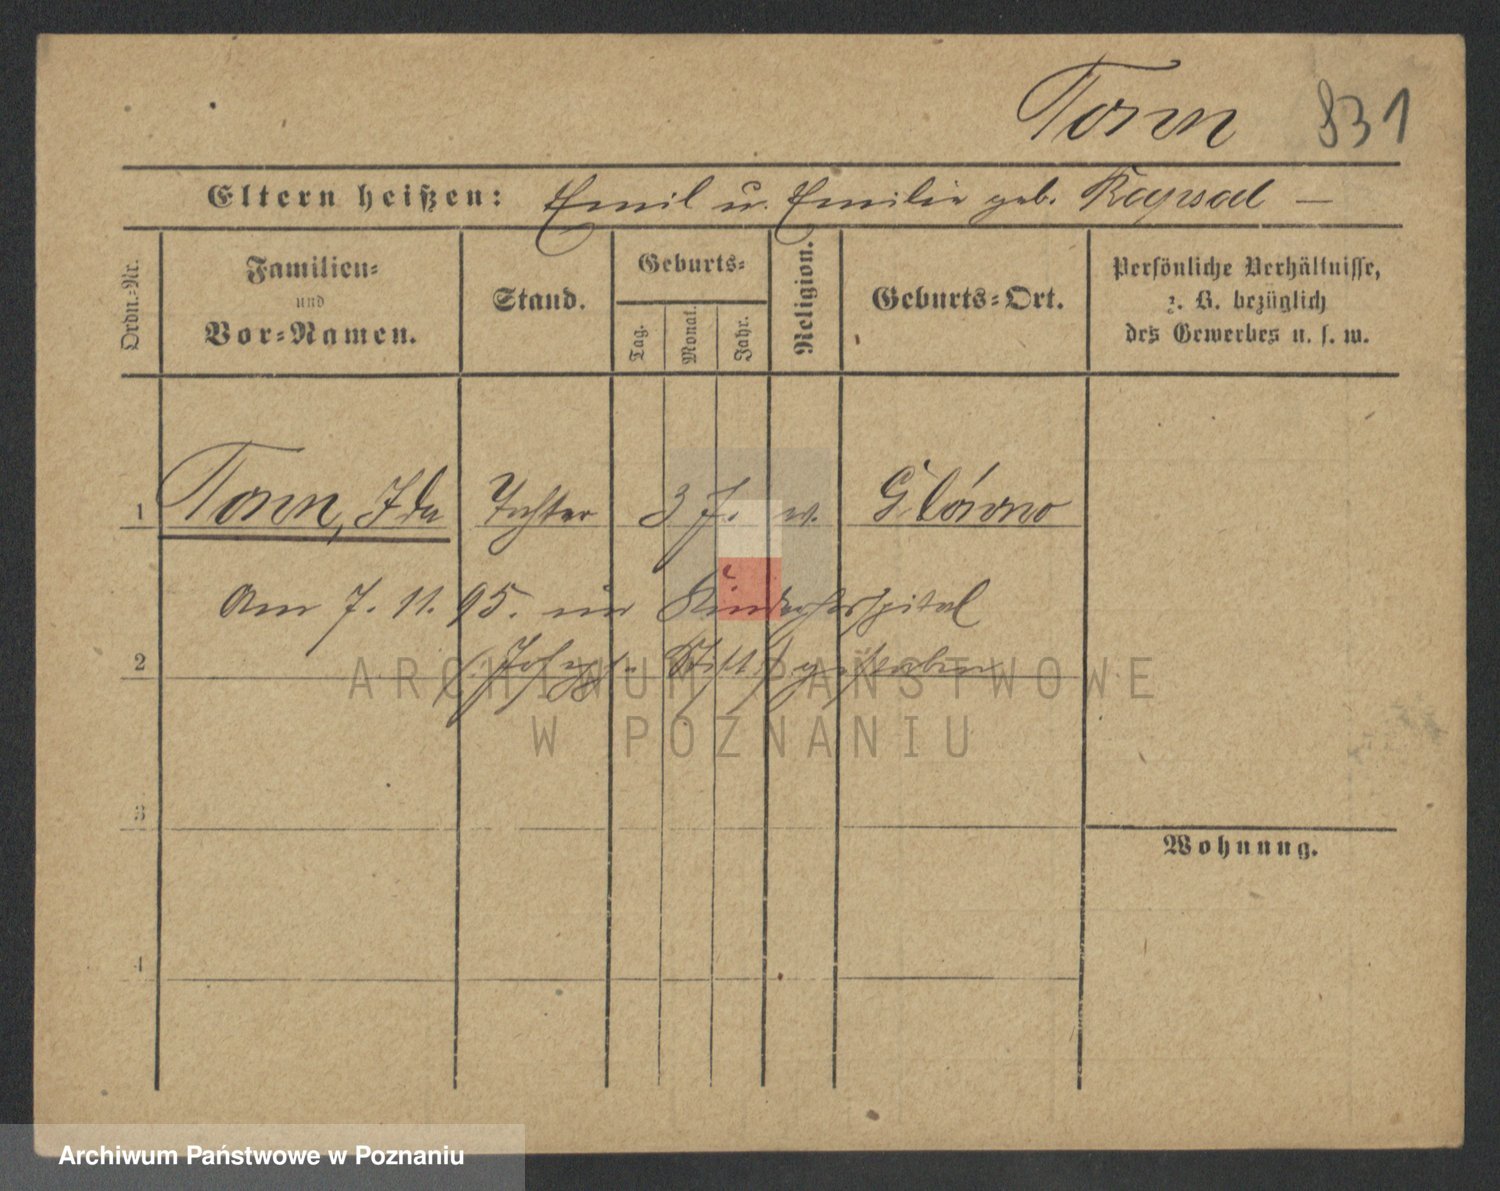 Tonn 831
Eltern heißen: Emil u. Emilie geb. Kapsal —
Ordn.-Nr.
Familien-
und
Vor-Namen.
Stand.
Geburts-
Tag.
Monat.
Jahr.
Religion.
Geburts-Ort.
Persönliche Verhältnisse,
z. B. bezüglich
des Gewerbes u. s. w.
1 Tonn, Ida Tochter 3 J. w. Glówno
Am 7. 11. 95. im Kinderhospital
2 (Josefs-Stift) gestorben
3
Wohnung.
4
ARCHIWUM PAŃSTWOWE
W POZNANIU
Archiwum Państwowe w Poznaniu